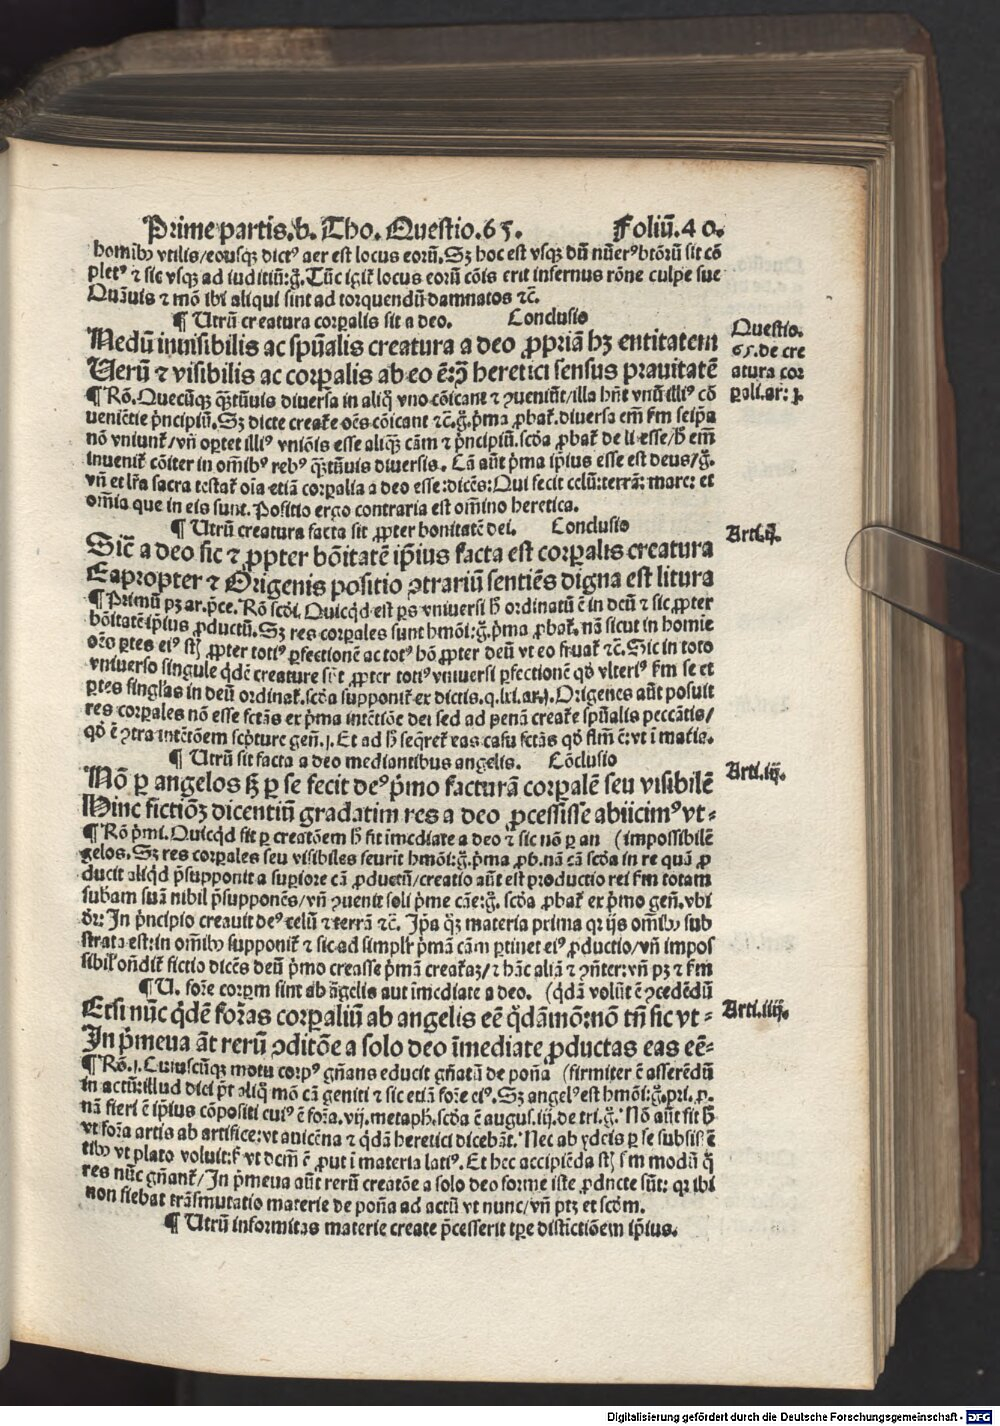 Prime partis.b. Tho. Questio.65. Foliū.40.
homībꝰ vtilis/eousqꝫ dictꝰ aer est locus eorū. Sꝫ hoc est vsqꝫ dū nūerꝰ btōrū sit cō
pletꝰ ⁊ sic vsqꝫ ad iuditiū:ḡ. Tūc igit̃ locus eorū cōis erit infernus rōne culpe sue
Quāuis ⁊ mō ibi aliqui sint ad torquendū damnatos ⁊c̃.
¶ Utrū creatura corꝑalis sit a deo. Conclusio
Nedū inuisibilis ac spūalis creatura a deo ꝓpriā hꝫ entitatem
Uerū ⁊ visibilis ac corꝑalis ab eo ē:ꝯ̃ heretici sensus prauitatē
Questio.
65.de cre
atura cor
ꝑali.ar: j.
¶ Rō. Quecūqꝫ qͣꝫtūuis diuersa in aliq̊ vno cōicant ⁊ ꝯueniūt/illa hn̄t vnū illiꝰ cō
uenictie pͥncipiū. Sꝫ dicte create oēs cōicant ⁊c̃.ḡ.pͥma ꝓbat̃.diuersa em̄ fm seip̄a
nō vniunt̃/vn̄ oꝑtet illiꝰ vniōis esse aliqͣꝫ cām ⁊ pͥncipiū.scd̄a ꝓbat̃ de li esse/h̄ em̄
inuenit̃ cōiter in om̄ibꝰ rebꝰ qͣꝫtūuis diuersis. Cā aūt pͥma ip̄ius esse est deus/ḡ.
vn̄ et lr̄a sacra testat̃ oīa etiā corꝑalia a deo esse:dicēs: Qui fecit celū:terrā: mare: et
om̄ia que in eis sunt. Positio ergo contraria est om̄ino heretica.
¶ Utrū creatura facta sit ꝓpter bonitatē dei. Conclusio
Arti.ij.
Sic̄ a deo sic ⁊ ꝓpter bōitatē ip̄ius facta est corꝑalis creatura
Eapropter ⁊ Origenis positio ꝯtrariū sentiēs digna est litura
¶ Primū pꝫ ar.p̄ce. Rō scd̄i. Quicqͥd est ꝑs vniuersi h̄ ordinatū ē in deū ⁊ sic ꝓpter
bōitatē ip̄ius ꝓductū. Sꝫ res corꝑales sunt hmōi:ḡ.pͥma ꝓbat̃. nā sicut in homie
oēs ꝑtes eiꝰ st̄ ꝓpter totiꝰ ꝑfectionē ac totꝰ hō ꝓpter deū vt eo fruat̃ ⁊c̃. Sic in toto
vniuerso singule qͥdē creature sūt ꝓpter totiꝰ vniuersi ꝑfectionē qd̄ vlteriꝰ fm se et
ꝑtes singl̄as in deū ordinat̃.scd̄a supponit̃ ex dictis.q.lxi.ar.j. Origenes aūt posuit
res corꝑales nō esse fctās ex pͥma intētiōe dei sed ad penā creat̃e spūalis peccātis/
qd̄ ē ꝯtra intētōem scp̄ture gen̄.j. Et ad h̄ seqͥret̃ eas casu fctās qd̄ flm̄ ē:vt i matia.
¶ Utrū sit facta a deo mediantibus angelis. Cōclusio
Arti.iij.
Nō ꝑ angelos sꝫ ꝑ se fecit deꝰ pͥmo facturā corꝑalē seu visibilē
Hinc fictiōꝫ dicentiū gradatim res a deo ꝓcessisse abiicimꝰ vt⸗
¶ Rō pͥmi. Quicqͥd fit ꝑ creatōem h̄ fit īmediate a deo ⁊ sic nō ꝑ an (impossibilē
gelos. Sꝫ res corꝑales seu visibiles fuerūt hmōi:ḡ.pͥma ꝓb.nā cā scd̄a in re quā ꝓ
ducit aliqͥd p̄supponit a suꝑiore cā ꝓductū/creatio aūt est productio rei fm totam
subam suā nihil p̄supponēs/vn̄ ꝯuenit soli pͥme cāe:ḡ. scd̄a ꝓbat̃ ex pͥmo gen̄.vbi
dr̄: In pͥncipio creauit deꝰ celū ⁊ terrā ⁊c̃. Ip̄a qͥꝫ materia prima qr ijs om̄ibꝰ sub
strata est:in om̄ibꝰ supponit̃ ⁊ sic ad simplr̄ pͥmā cām ꝑtinet eiꝰ ꝓductio/vn̄ impos
sibil' on̄dit̃ fictio dicēs deū pͥmo creasse pͥmā creat̃aꝫ/⁊ hāc aliā ⁊ ꝯn̄ter:vn̄ pꝫ ⁊ fm
¶ U. forē corꝑm sint ab āgelis aut īmediate a deo. (qͥdā volūt ē ꝯcedēdū
Arti.iiij.
Etsi nūc qͥdē for̄as corꝑaliū ab angelis eē qͥdāmō:nō tn̄ sic vt⸗
In pͥmeua āt rerū ꝯditōe a solo deo īmediate ꝓductas eas eē⸗
¶ Rō.j. Cuiuscūqꝫ motu corpꝰ gn̄ans educit gn̄atū de pon̄a (firmiter ē asserēdū
in actū:illud dici pōt aliq̊ mō cā geniti ⁊ sic etiā for̄e eiꝰ. Sꝫ angelꝰ est hmōi:ḡ.pri. ꝓ.
nā fieri ē ip̄ius cōpositi cuiꝰ ē for̄a. vij. metaph̄.scd̄a ē augus.iij.de tri.ḡ. Nō aūt fit h̄
vt for̄a artis ab artifice:vt auicēna ⁊ qͥdā heretici dicebāt. Nec ab ydeis ꝑ se subsistē
tibꝰ vt plato voluit:s̄ vt dcm̄ ē ꝓut ī materia latiꝰ. Et hec accipiēda st̄ fm modū q̊
res nūc gn̄ant̃/In pͥmeua aūt rerū creatōe a solo deo forme iste ꝓducte sūt: qr ibi
non fiebat trāsmutatio materie de pon̄a ad actū vt nunc/vn̄ ptꝫ et scd̄m.
¶ Utrū informitas materie create p̄cesserit tꝑe distictiōem ip̄ius.
Digitalisierung gefördert durch die Deutsche Forschungsgemeinschaft - DFG